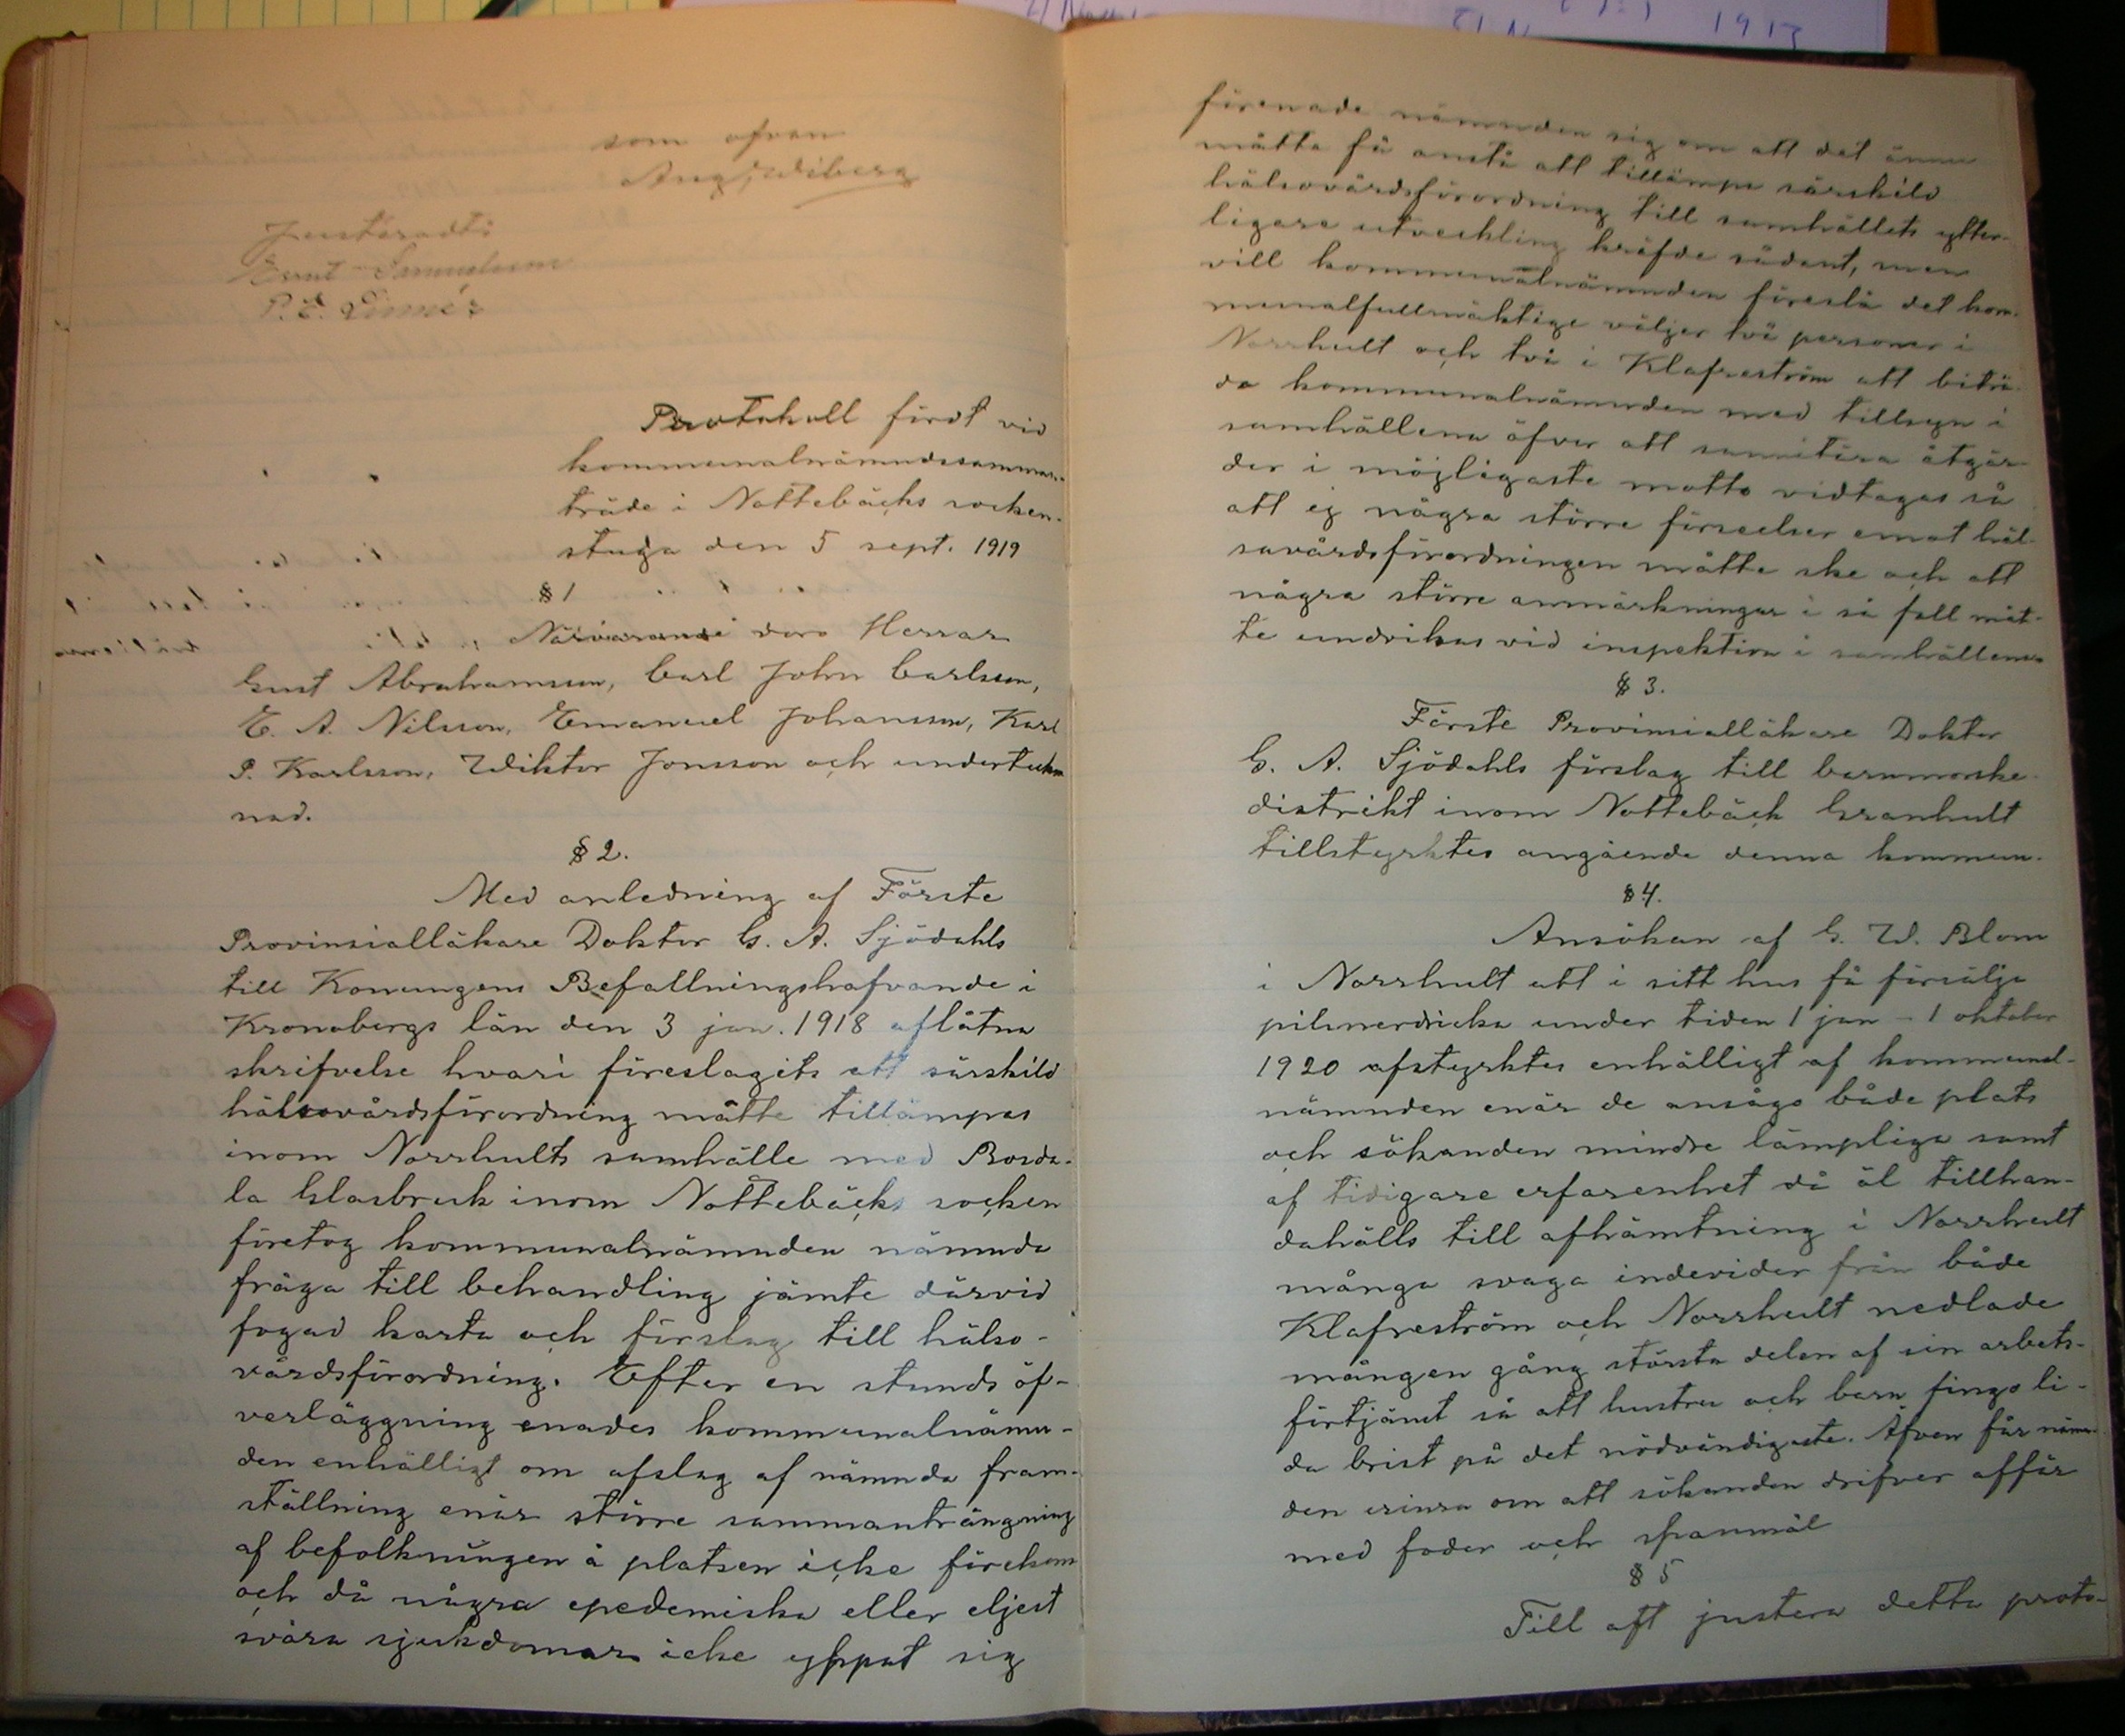 som ofvan
Aug. Wiberg
Justeradt:
Ernst Samuelsson
P. E. Linnér
Protokoll fördt vid
kommunalnämndssamman-
träde i Nottebäcks socken-
stuga den 5 sept. 1919
§ 1
Närvarande voro Herrar
Gust Abrahamsson, Carl John Carlsson,
E. A. Nilsson, Emanuel Johansson, Karl
P. Karlsson, Wiktor Jonsson och underteck
nad.
§ 2.
Med anledning af Förste
Provinsialläkare Doktor G. A. Sjödahls
till Konungens Befallningshafvande i
Kronobergs län den 3 jan. 1918 aflåtna
skrifvelse hvari föreslagits att särskild
hälsovårdsförordning måtte tillämpas
inom Norrhults samhälle med Rosda-
la Glasbruk inom Nottebäcks socken
företog kommunalnämnden nämnda
fråga till behandling jämte därvid
fogad karta och förslag till hälso-
vårdsförordning. Efter en stunds öf-
verläggning enades kommunalnämn-
den enhälligt om afslag af nämnda fram-
ställning enär större sammanträngning
af befolkningen å platsen icke förekom
och då några epedemiska eller eljest
svåra sjukdomar icke yppat sig
förenade nämnden sig om att det ännu
måtte få anstå att tillämpa särskild
hälsovårdsförordning till samhällets ytter-
ligare utveckling kräfde sådant, men
vill kommunalnämnden föreslå det kom-
munalfullmäktige väljer två personer i
Norrhult och två i Klafreström att biträ-
da kommunalnämnden med tillsyn i
samhällena öfver att sanitära åtgär-
der i möjligaste motto vidtagas så
att ej några större förseelser emot häl-
sovårdsförordningen måtte ske och att
några större anmärkningar i så fall måt-
te undvikas vid inspektion i samhällena
§ 3.
Förste Provinsialläkare Doktor
G. A. Sjödahls förslag till barnmorske-
distrikt inom Nottebäck Granhult
tillstyrktes angående denna kommun.
§ 4.
Ansökan af G. W. Blom
i Norrhult att i sitt hus få försälja
pilsnerdricka under tiden 1 jan - 1 oktober
1920 afstyrktes enhälligt af kommunal-
nämnden enär de ansågo både plats
och sökanden mindre lämpliga samt
af tidigare erfarenhet då öl tillhan-
dahålls till afhämtning i Norrhult
många svaga indevider från både
Klafreström och Norrhult nedlade
mången gång största delen af sin arbets-
förtjänst så att hustru och barn fingo li-
da brist på det nödvändigaste. Äfven får nämn-
den erinra om att sökanden drifver affär
med foder och spanmål
§ 5
Till att justera detta proto-